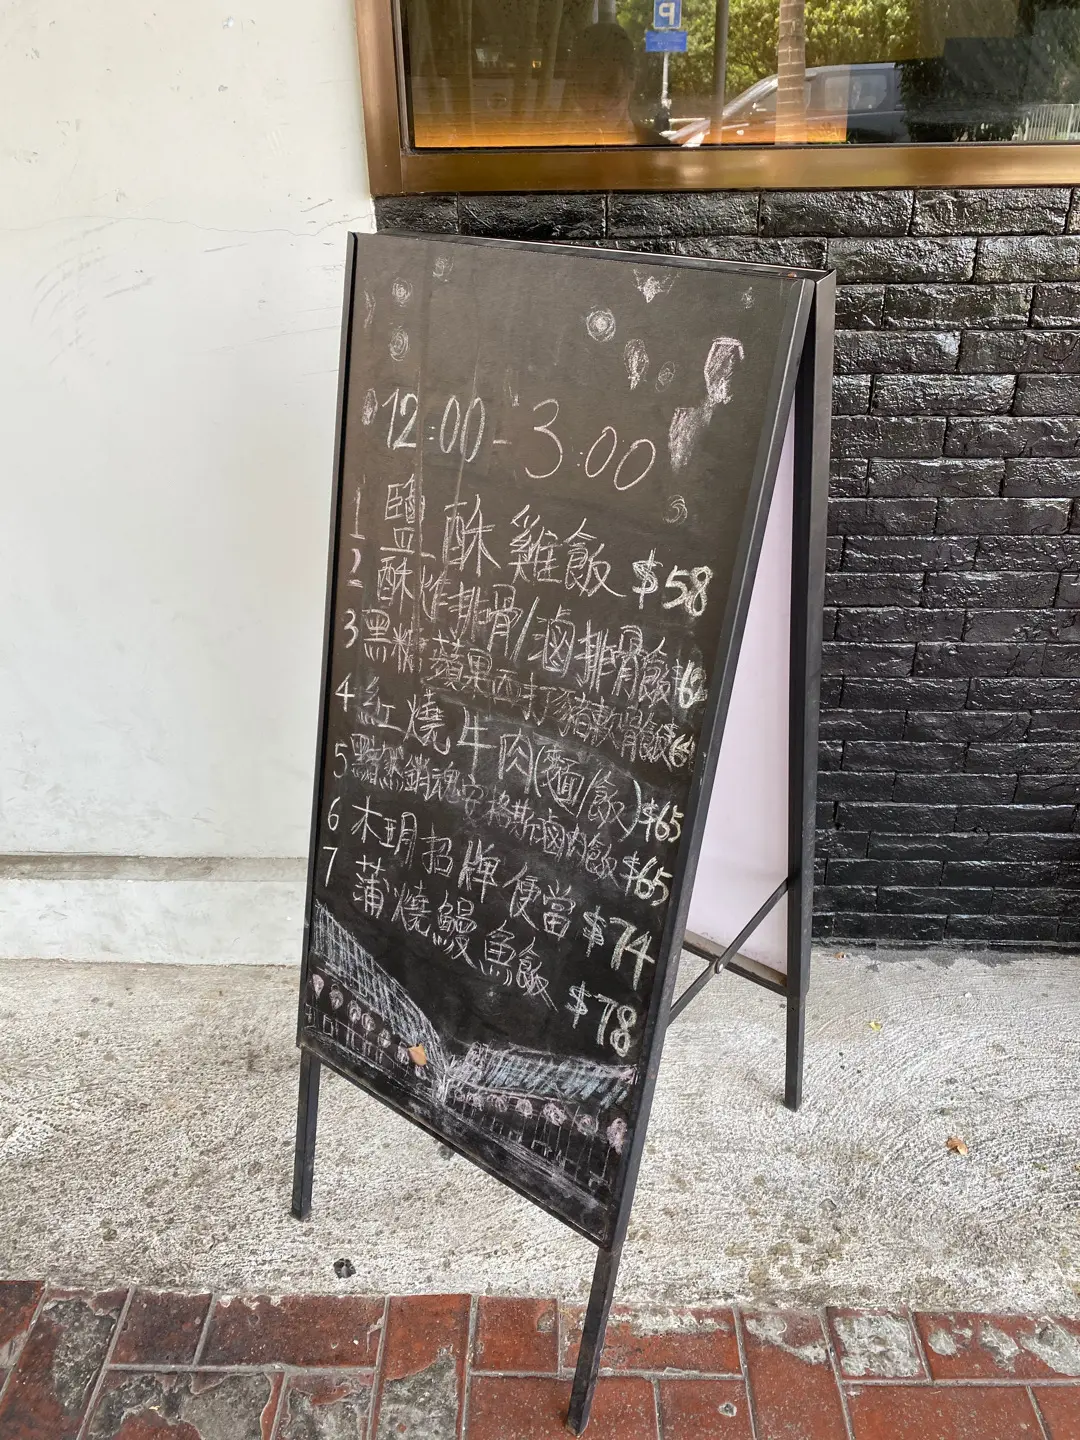 P
12:00-3:00
1 鹽酥雞飯 $58
2 酥炸排骨/滷排骨飯
3 黑糖蘋果西打豬軟骨飯
4 紅燒牛肉(麵/飯) $65
5 黯然銷魂安格斯滷肉飯 $65
6 木玥招牌便當 $74
7 蒲燒鰻魚飯 $78